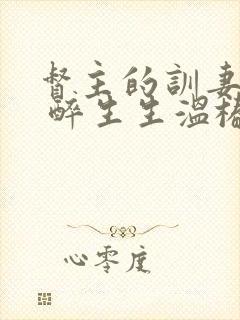 督主的訓妻
醉生生溫樁
心零度